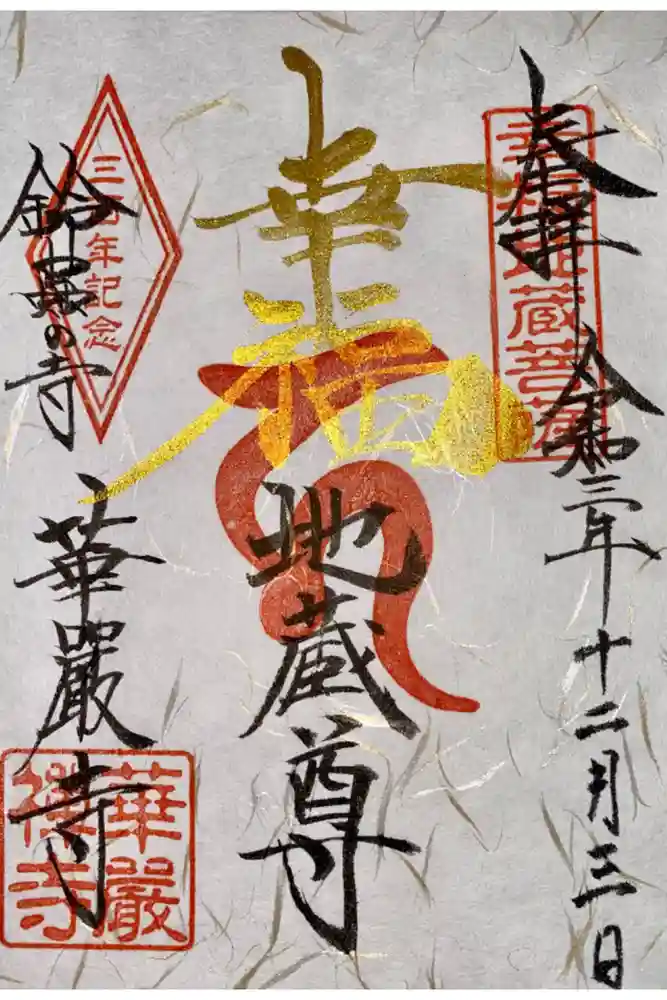 奉拝
令和三年十二月三日
幸福地蔵菩薩
幸福
地蔵尊
三百年記念
鈴虫の寺
華嚴寺
華嚴
禅寺